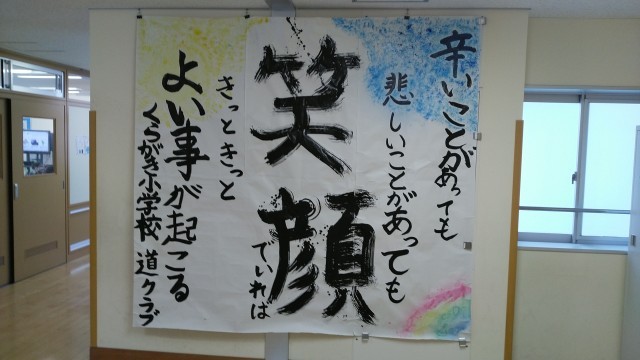 辛いことがあっても
悲しいことがあっても
笑顔
でいれば
きっときっと
よい事が起こる
くらがき小学校 道クラブ